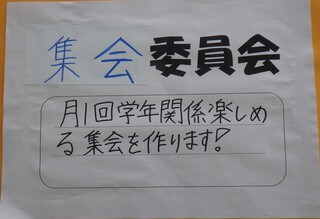 集会委員会
月1回学年関係楽しめ
る集会を作ります!